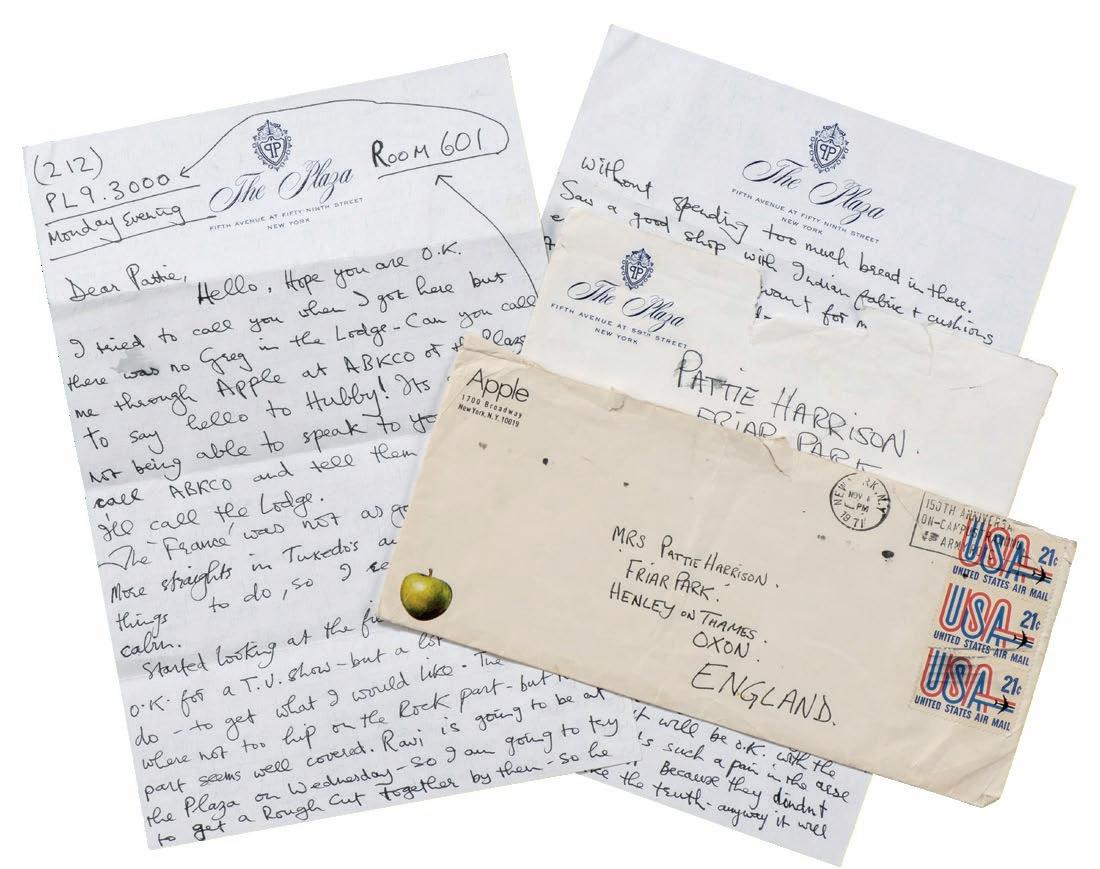 (212)
PL9.3000
Monday Evening
The Plaza
FIFTH AVENUE AT FIFTY-NINTH STREET
NEW YORK
ROOM 601
Dear Pattie,
Hello, Hope you are O.K.
I tried to call you when I got here but
there was no Greg in the Lodge - Can you call
me through Apple at ABKCO or the Plaza
To say hello to Hubby! Its
not being able to speak to yo
call ABKCO and tell them
I'll call the Lodge.
The 'France' was not as go
More straights in Tuxedo's a
things to do, so I
calm.
Started looking at the fi
O.K. for a T.V. show - but a lot
do - to get what I would like. The
where not too hip on the Rock part - but
part seems well covered. Ravi is going to be at
the Plaza on Wednesday - So I am going to try
to get a Rough Cut together by then - so he
The Plaza
FIFTH AVENUE AT FIFTY-NINTH STREET
NEW YORK
without spending too much bread in there.
Saw a good shop with Indian fabric + cushions
want for m
it will be O.K. with the
is such a pain in the arse
Because they dindnt
like the truth - anyway it will
The Plaza
FIFTH AVENUE AT 59th STREET
NEW YORK
PATTIE HARRISON.
FRIAR PARK
Apple
1700 Broadway
New York, N.Y. 10019
NEW YORK, N.Y.
NOV
PM
1971
150TH ANNIVERSA
ON-CAMPUS
ARM
USA 21c
UNITED STATES AIR MAIL
USA 21c
UNITED STATES AIR MAIL
USA 21c
UNITED STATES AIR MAIL
MRS PATTIE HARRISON.
FRIAR PARK.
HENLEY ON THAMES.
OXON.
ENGLAND.